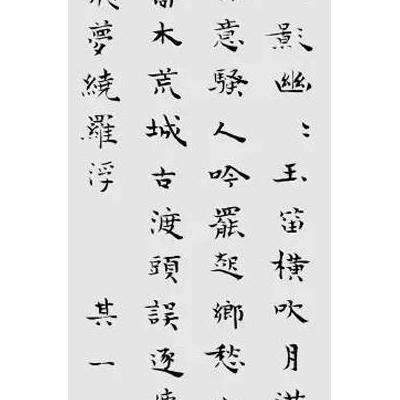 影幽〻玉笛橫吹月
意騷人吟罷起鄉愁
木荒城古渡頭誤逐
夢繞羅浮 其一